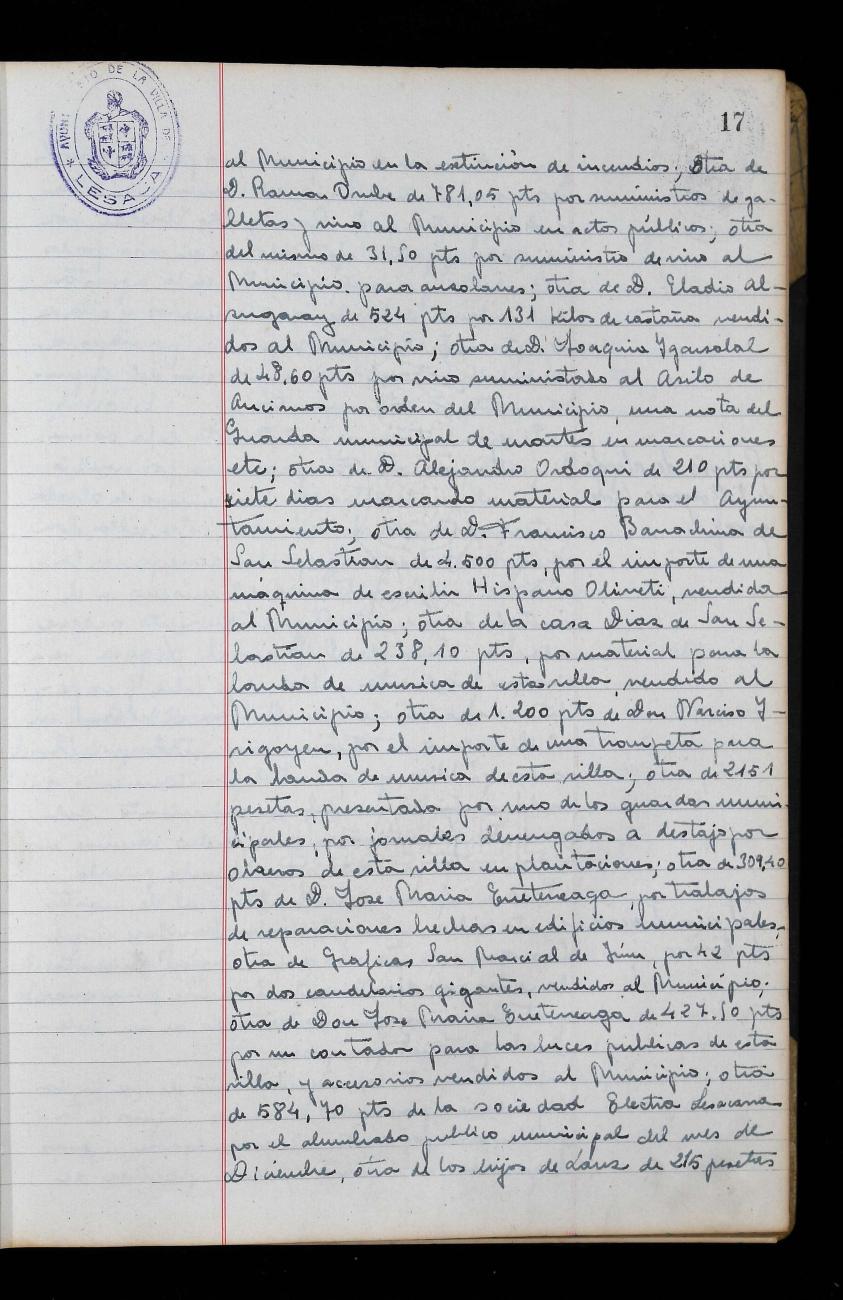 AYUNTAMIENTO DE LA VILLA DE
* LESACA
17
al Municipio en la extinción de incendios; Otra de
D. Ramon Drube de 781,05 pts por suministros de ga-
lletas y vino al Municipio en actos públicos; otra
del mismo de 31,50 pts por suministro de vino al
Municipio para auzolanes; otra de D. Eladio Al-
zugaray de 524 pts por 131 kilos de castaña vendi-
dos al Municipio; otra de D. Joaquin
de 48,60 pts por vino suministrado al Asilo de
Ancianos por orden del Municipio, una nota del
Guarda municipal de montes en marcaciones
etc; otra de D. Alejandro Ordoqui de 210 pts por
siete dias marcando material para el Ayun-
tamiento; otra de D. Francisco de
San Sebastian de 4.500 pts, por el importe de una
máquina de escribir Hispano Oliveti, vendida
al Municipio; otra de la casa Diaz de San Se-
bastian de 238,10 pts, por material para la
banda de musica de esta villa, vendido al
Municipio; otra de 1.200 pts de Don Narciso Y-
rigoyen, por el importe de una trompeta para
la banda de musica de esta villa; otra de 2151
pesetas, presentada por uno de los guardas muni-
cipales, por jornales devengados a destajo por
obreros de esta villa en plantaciones; otra de 309,40
pts de D. Jose Maria Erreteneaga, por trabajos
de reparaciones hechas en edificios municipales,
otra de Graficas San Marcial de Irún, por 42 pts
por dos candelarios gigantes, vendidos al Municipio;
otra de Don Jose Maria Erreteneaga de 427.50 pts
por un contador para las luces publicas de esta
villa, y accesorios vendidos al Municipio; otra
de 584,70 pts de la sociedad Electra Lesacana
por el alumbrado publico municipal del mes de
Diciembre, otra de los hijos de Lanz de 215 pesetas